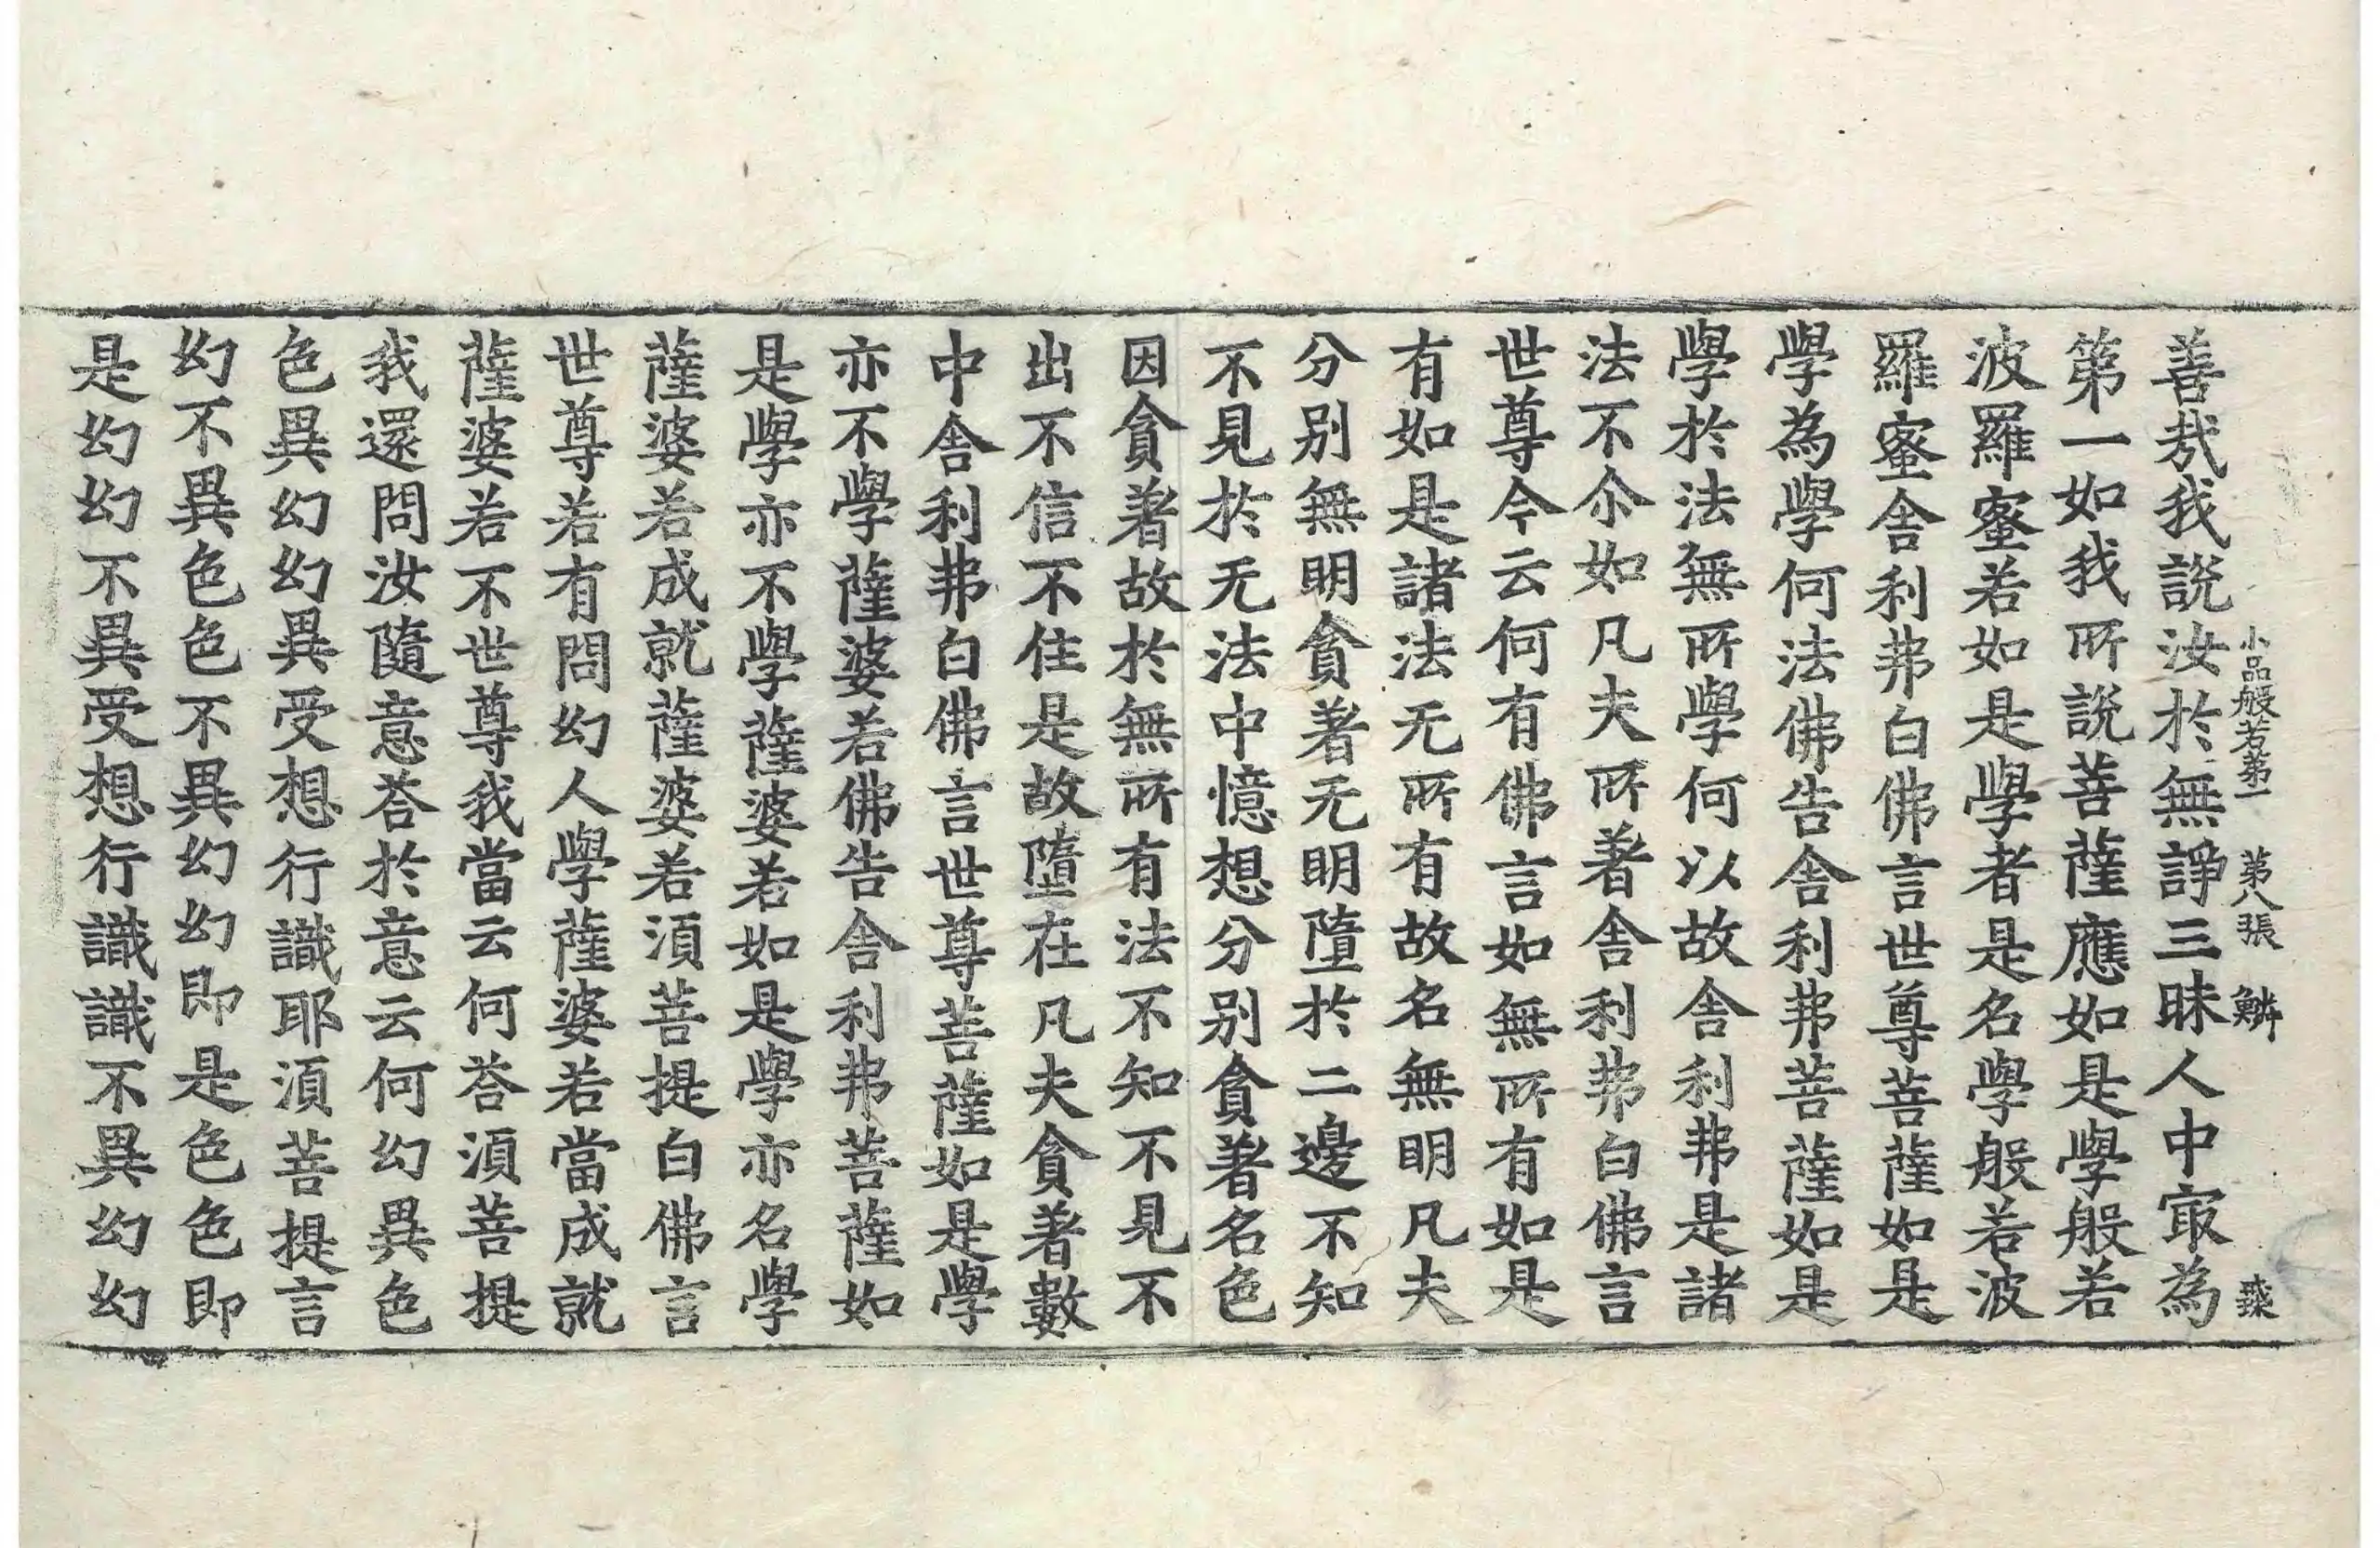 小品般若第一 第八張 鱗
善㢤我說汝於無諍三昧人中㝡為
第一如我所說菩薩應如是學般若
波羅蜜若如是學者是名學般若波
羅蜜舎利弗白佛言世尊菩薩如是
學為學何法佛告舎利弗菩薩如是
學於法無所學何以故舎利弗是諸
法不尒如凡夫所著舎利弗白佛言
世尊今云何有佛言如無所有如是
有如是諸法无所有故名無明凡夫
分別無明貪著无明墮於二邊不知
不見於无法中憶想分別貪著名色
因貪著故於無所有法不知不見不
出不信不住是故墮在凡夫貪著數
中舎利弗白佛言世尊菩薩如是學
亦不學薩婆若佛告舎利弗菩薩如
是學亦不學薩婆若如是學亦名學
薩婆若成就薩婆若須菩提白佛言
世尊若有問幻人學薩婆若當成就
薩婆若不世尊我當云何荅須菩提
我還問汝隨意荅於意云何幻異色
色異幻幻異受想行識耶須菩提言
幻不異色色不異幻幻即是色色即
是幻幻不異受想行識識不異幻幻